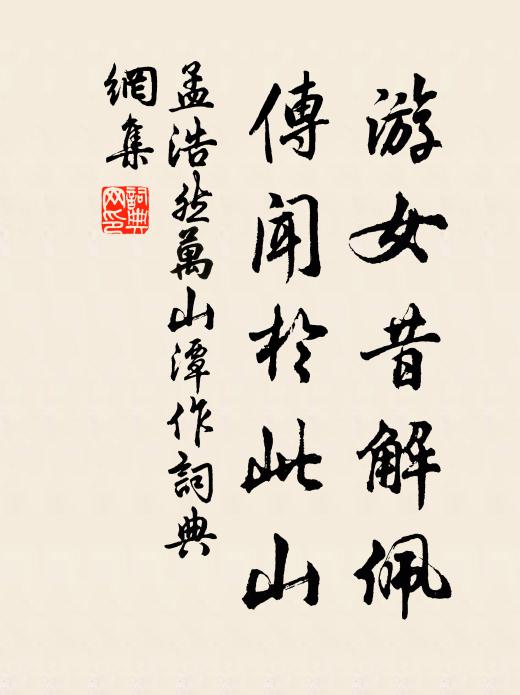 游女昔解佩
傳聞於此山
孟浩然萬山潭作詞典
網集
詞典
网印